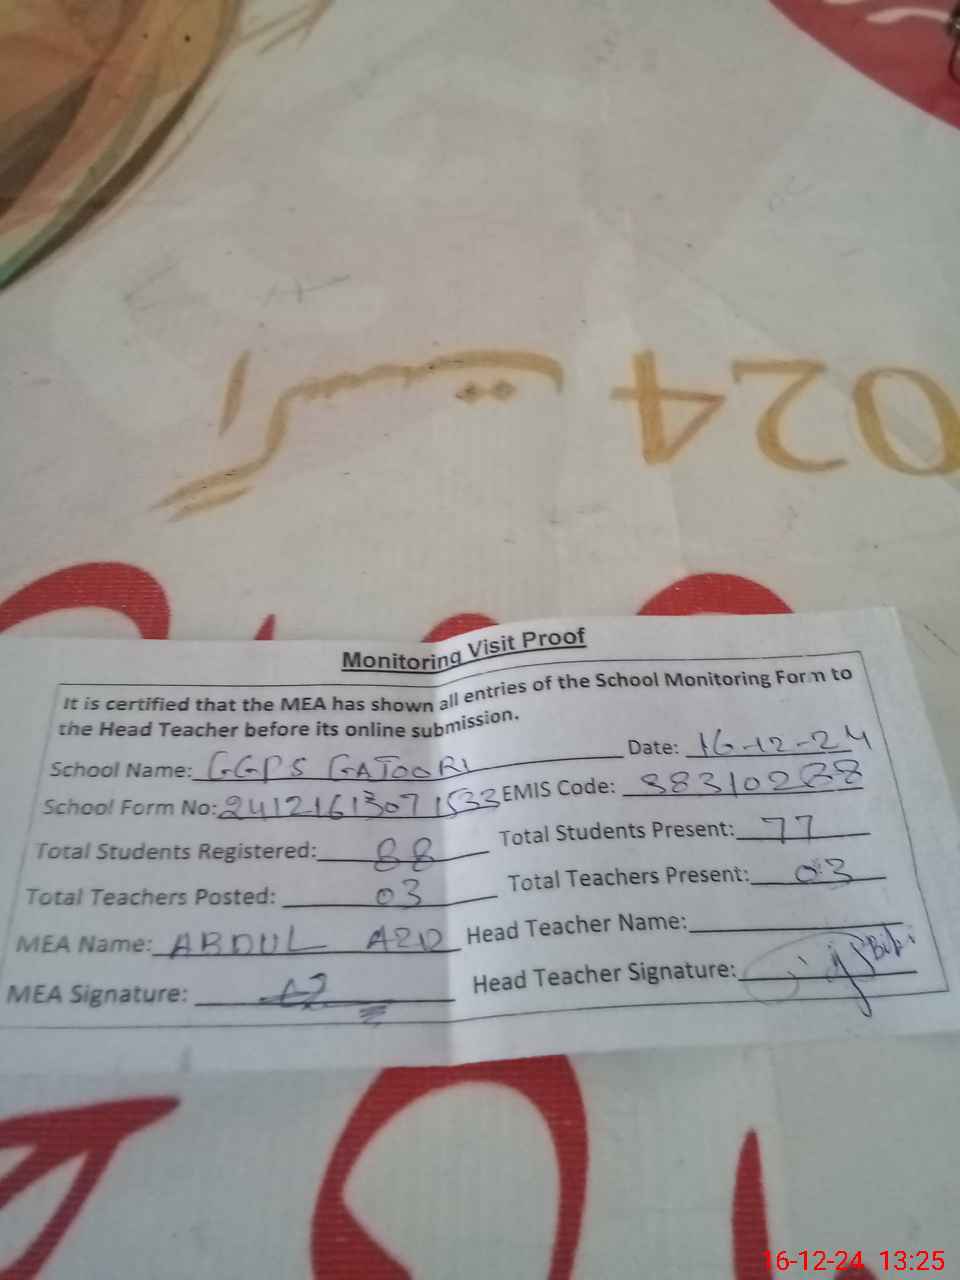 اگست
024
Monitoring Visit Proof
It is certified that the MEA has shown all entries of the School Monitoring Form to
the Head Teacher before its online submission.
School Name: GGPS GATOORI Date: 16-12-24
School Form No: 24121613071533 EMIS Code: 38310238
Total Students Registered: 88 Total Students Present: 77
Total Teachers Posted: 03 Total Teachers Present: 03
MEA Name: ABDUL AZIZ Head Teacher Name:
MEA Signature: Head Teacher Signature: Bibi
16-12-24 13:25